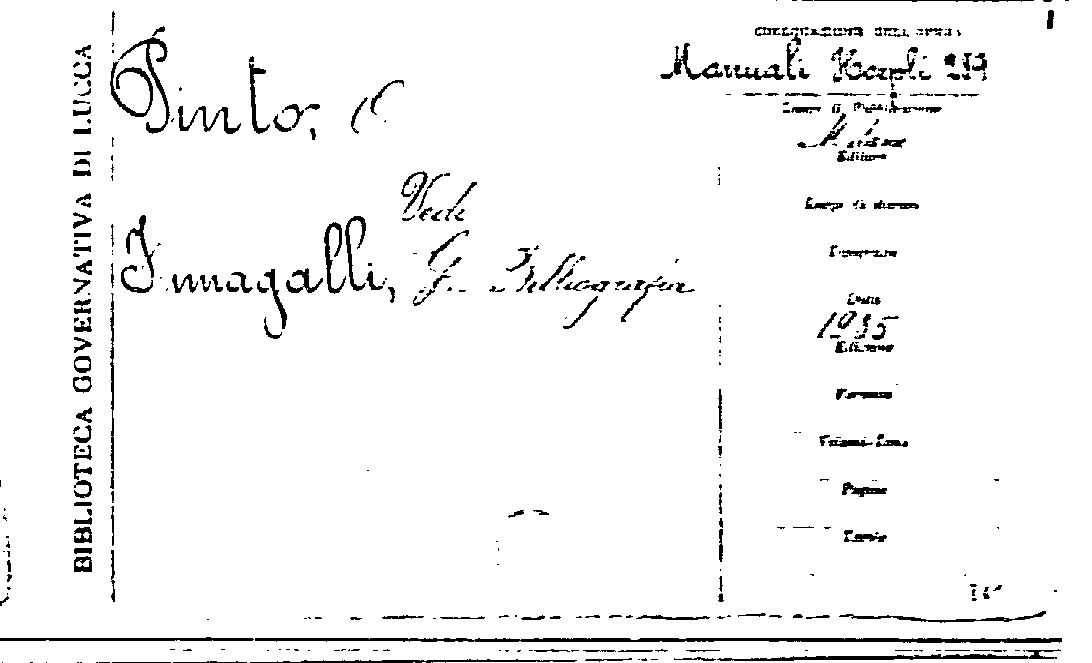 BIBLIOTECA GOVERNATIVA DI LUCCA
Pinto, O
Vedi
Fumagalli, G. Bibliografia
COLLOCAZIONE DELL'OPERA
Manuali Hoepli
Luogo di Pubblicazione
Milano
Editore
Luogo di stampa
Tipografia
Data
1935
Edizione
Formato
Volumi-Tomi
Pagine
Tavole